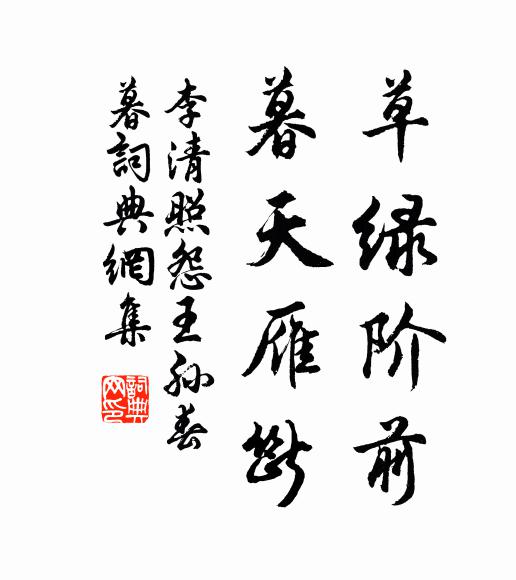 草绿阶前
暮天雁断
李清照怨王孙春
暮词典网集
詞典
网印